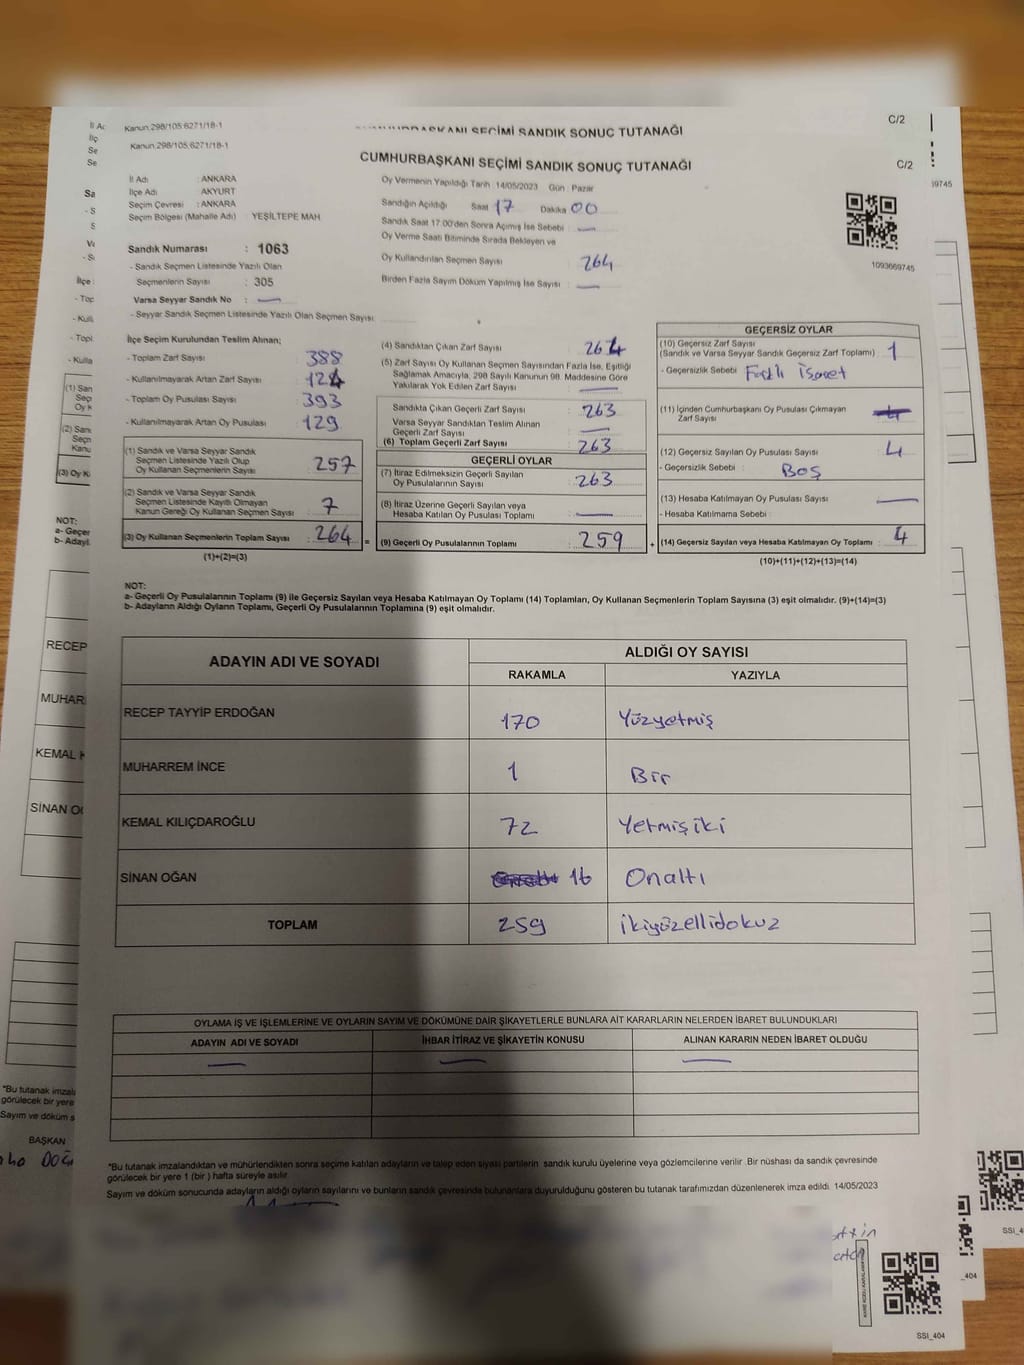 Kanun:298/105;6271/18-1
SEÇİMİ SANDIK SONUÇ TUTANAĞI
C/2
Kanun:298/105;6271/18-1
CUMHURBAŞKANI SEÇİMİ SANDIK SONUÇ TUTANAĞI
C/2
İl Adı : ANKARA
İlçe Adı : AKYURT
Seçim Çevresi : ANKARA
Seçim Bölgesi (Mahalle Adı) : YEŞİLTEPE MAH
Oy Vermenin Yapıldığı Tarih :14/05/2023 Gün : Pazar
Sandığın Açıldığı Saat 17 Dakika 00
Sandık Saat 17:00'den Sonra Açılmış İse Sebebi : —
Oy Verme Saati Bitiminde Sırada Bekleyen ve
Oy Kullandırılan Seçmen Sayısı : 264
Birden Fazla Sayım Döküm Yapılmış İse Sayısı : —
1093669745
Sandık Numarası : 1063
- Sandık Seçmen Listesinde Yazılı Olan
Seçmenlerin Sayısı : 305
Varsa Seyyar Sandık No : —
- Seyyar Sandık Seçmen Listesinde Yazılı Olan Seçmen Sayısı:
İlçe Seçim Kurulundan Teslim Alınan;
- Toplam Zarf Sayısı : 388
- Kullanılmayarak Artan Zarf Sayısı : 124
- Toplam Oy Pusulası Sayısı : 393
- Kullanılmayarak Artan Oy Pusulası : 129
(1) Sandık ve Varsa Seyyar Sandık
Seçmen Listesinde Yazılı Olup
Oy Kullanan Seçmenlerin Sayısı : 257
(2) Sandık ve Varsa Seyyar Sandık
Seçmen Listesinde Kayıtlı Olmayan
Kanun Gereği Oy Kullanan Seçmen Sayısı : 7
(3) Oy Kullanan Seçmenlerin Toplam Sayısı : 264 =
(1)+(2)=(3)
(4) Sandıktan Çıkan Zarf Sayısı : 264
(5) Zarf Sayısı Oy Kullanan Seçmen Sayısından Fazla İse, Eşitliği
Sağlamak Amacıyla, 298 Sayılı Kanunun 98. Maddesine Göre
Yakılarak Yok Edilen Zarf Sayısı : —
Sandıkta Çıkan Geçerli Zarf Sayısı : 263
Varsa Seyyar Sandıktan Teslim Alınan
Geçerli Zarf Sayısı : —
(6) Toplam Geçerli Zarf Sayısı : 263
GEÇERLİ OYLAR
(7) İtiraz Edilmeksizin Geçerli Sayılan
Oy Pusulalarının Sayısı : 263
(8) İtiraz Üzerine Geçerli Sayılan veya
Hesaba Katılan Oy Pusulası Toplamı : —
(9) Geçerli Oy Pusulalarının Toplamı : 259 +
GEÇERSİZ OYLAR
(10) Geçersiz Zarf Sayısı
(Sandık ve Varsa Seyyar Sandık Geçersiz Zarf Toplamı) : 1
- Geçersizlik Sebebi : Farklı İşaret
(11) İçinden Cumhurbaşkanı Oy Pusulası Çıkmayan
Zarf Sayısı :
(12) Geçersiz Sayılan Oy Pusulası Sayısı : 4
- Geçersizlik Sebebi : BOŞ
(13) Hesaba Katılmayan Oy Pusulası Sayısı : —
- Hesaba Katılmama Sebebi :
(14) Geçersiz Sayılan veya Hesaba Katılmayan Oy Toplamı : 4
(10)+(11)+(12)+(13)=(14)
NOT:
a- Geçerli Oy Pusulalarının Toplamı (9) ile Geçersiz Sayılan veya Hesaba Katılmayan Oy Toplamı (14) Toplamları, Oy Kullanan Seçmenlerin Toplam Sayısına (3) eşit olmalıdır. (9)+(14)=(3)
b- Adayların Aldığı Oyların Toplamı, Geçerli Oy Pusulalarının Toplamına (9) eşit olmalıdır.
ADAYIN ADI VE SOYADI ALDIĞI OY SAYISI
RAKAMLA YAZIYLA
RECEP TAYYİP ERDOĞAN 170 Yüzyetmiş
MUHARREM İNCE 1 Bir
KEMAL KILIÇDAROĞLU 72 Yetmişiki
SİNAN OĞAN 16 Onaltı
TOPLAM 259 ikiyüzellidokuz
OYLAMA İŞ VE İŞLEMLERİNE VE OYLARIN SAYIM VE DÖKÜMÜNE DAİR ŞİKAYETLERLE BUNLARA AİT KARARLARIN NELERDEN İBARET BULUNDUKLARI
ADAYIN ADI VE SOYADI İHBAR İTİRAZ VE ŞİKAYETİN KONUSU ALINAN KARARIN NEDEN İBARET OLDUĞU
— — —
*Bu tutanak imzalandıktan ve mühürlendikten sonra seçime katılan adayların ve talep eden siyasi partilerin sandık kurulu üyelerine veya gözlemcilerine verilir .Bir nüshası da sandık çevresinde
görülecek bir yere 1 (bir ) hafta süreyle asılır.
Sayım ve döküm sonucunda adayların aldığı oyların sayılarını ve bunların sandık çevresinde bulunanlara duyurulduğunu gösteren bu tutanak tarafımızdan düzenlenerek imza edildi. 14/05/2023
BAŞKAN
SSI_404